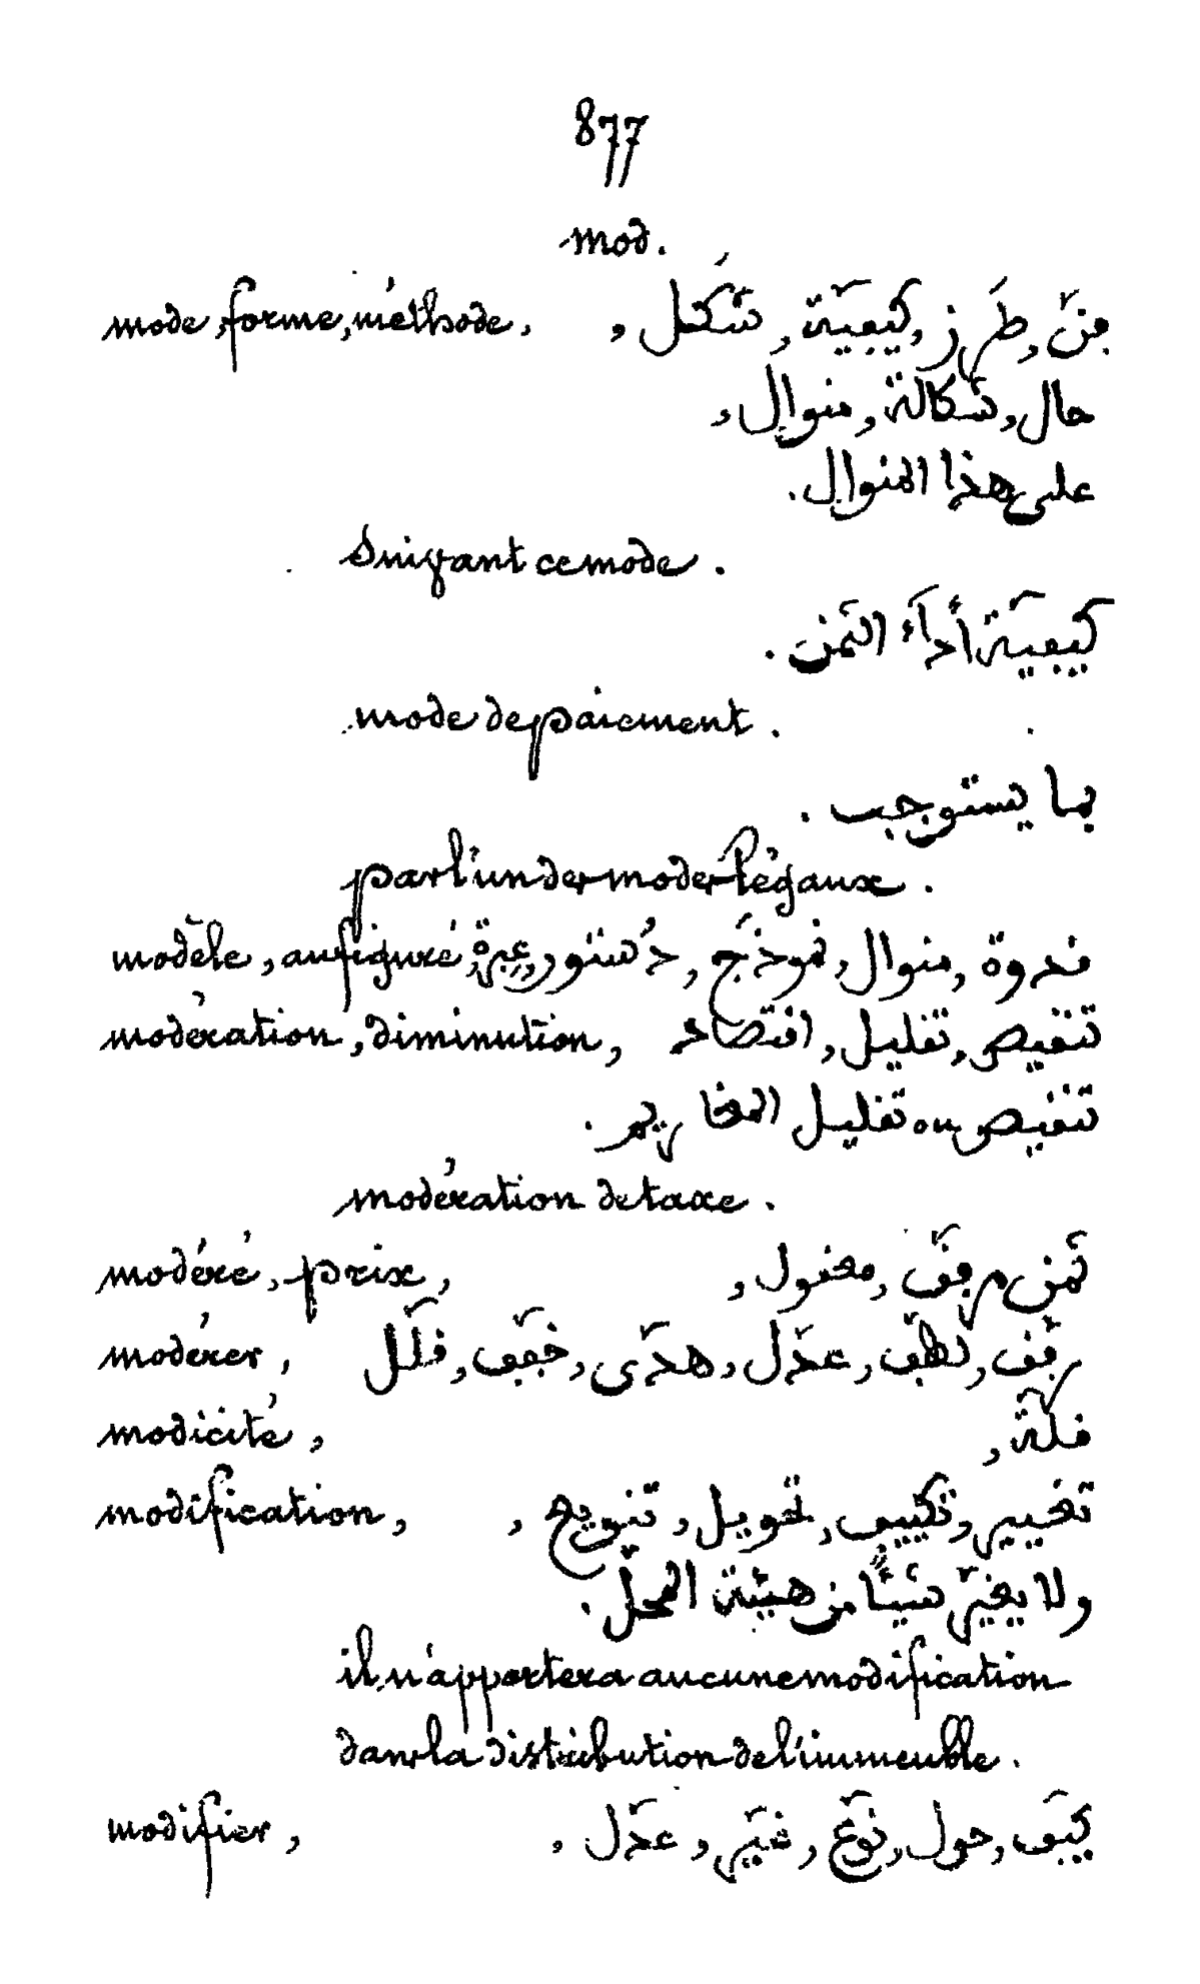 877
mod.
mode, forme, méthode, فنّ, طَرز, كيفيّة, شَكل,
حال, شكالة, منوال,
على هذا المنوال.
Suivant ce mode.
كيفيّة أدآء الثمن.
mode de paiement.
بما يستوجب.
par l'un des modes légaux.
modèle, au figuré, قدوة, منوال, نموذَج, دُستور, عِبرة
modération, diminution, تنقيص, تقليل, اقتصاد
تنقيص ou تقليل المغاريم.
modération de taxe.
modéré, prix, ثمن مرفّق, معقول,
modérer, رفّق, لطّف, عدّل, هدّى, خفّف, قلّل
modicité, قلّة,
modification, تغيير, تكييف, تحويل, تنويع,
ولا يغيّر شيئًا من هيئة المحلّ.
il n'apportera aucune modification
dans la distribution de l'immeuble.
modifier, كيّف, حول, نوّع, غيّر, عدّل,